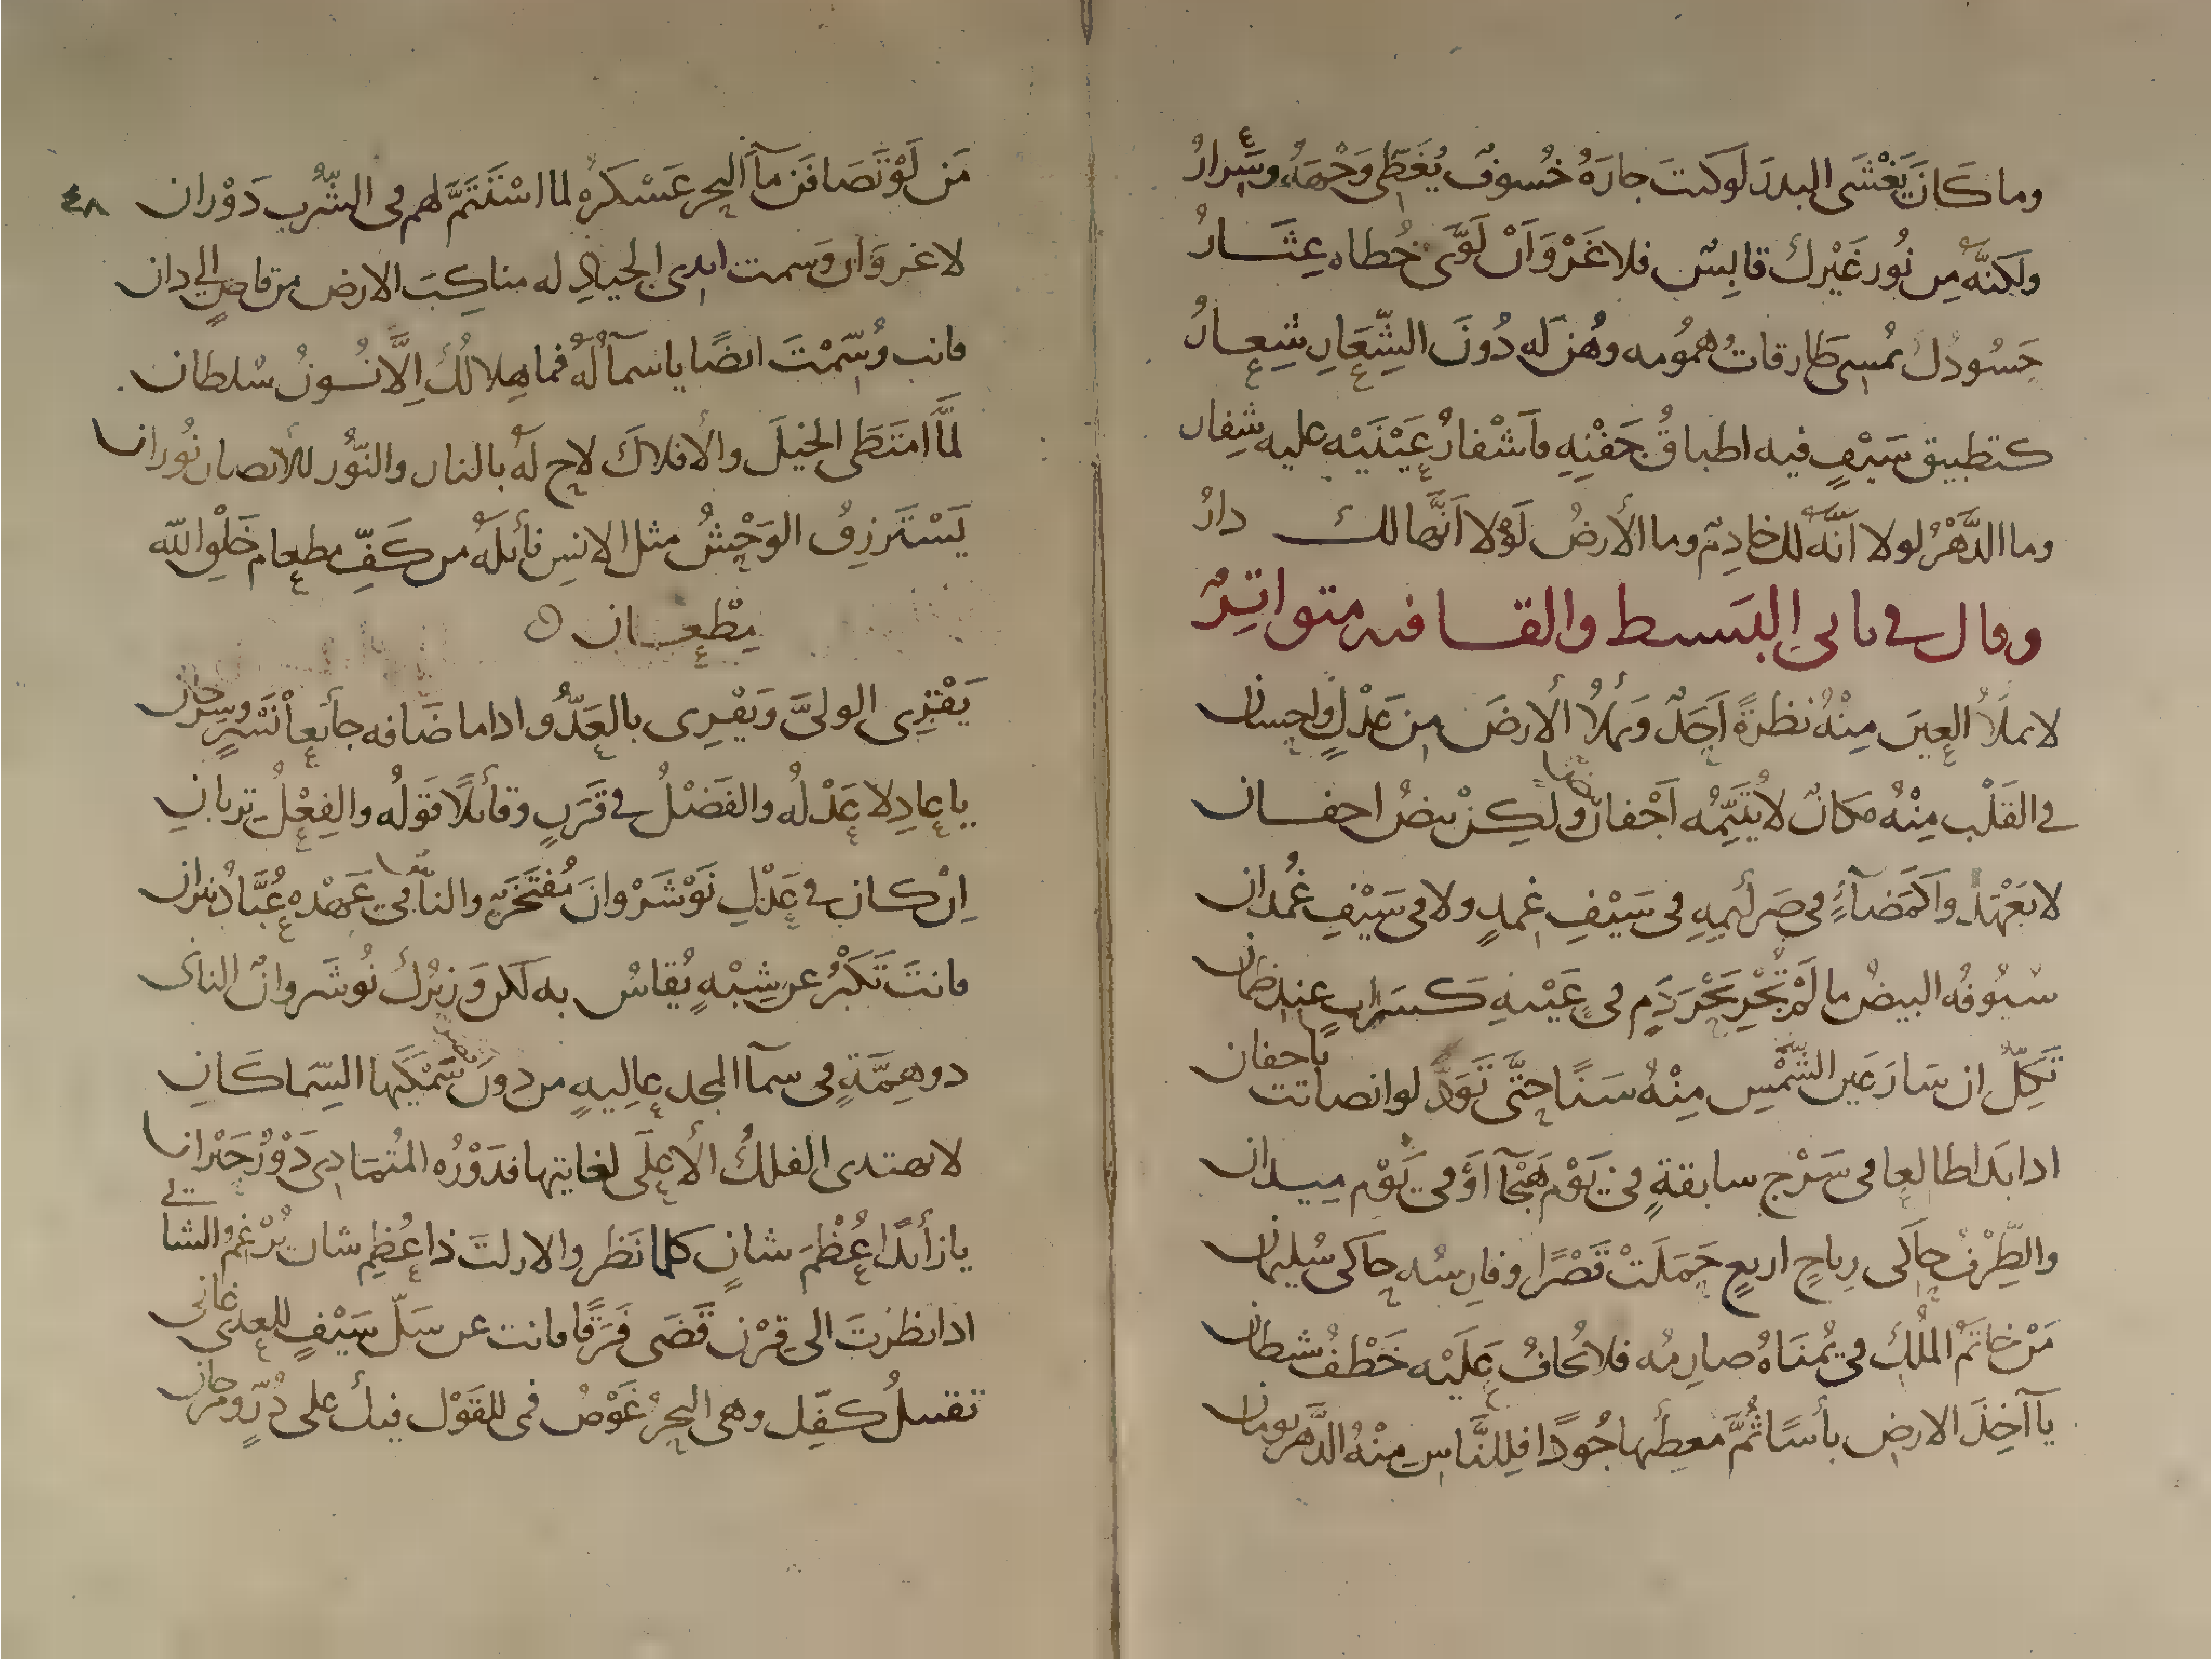 وما كَانَ يَغْشَى البدرَ لَوكنتَ جارَهُ خُسوفٌ يُغَطِّى وَجْهَهُ وسَِرارُ
ولكنَّهُ مِن نُور غَيْرك قابِسٌ فلا غَرْوَ اَنْ لَوَّى خُطاه عِثَــارُ
حَسُودكَ يُمسِى طَارقاتُ همُومه وهُن لَه دُونَ الشِّعَارِ شِعــارُ
كتطبيق سَيْفٍ فيه اطباقُ جَفْنِهِ واَشْفارُ عَيْنَيْه عليه شِفار
وما الدَّهْرُ لولا اَنَّه لك خادِمٌ وما الأرضُ لَوْلا اَنَّها لك دارُ
وقال في ثانى البَسيط والقــافيه متواتِرٌ
لا يملَأُ العينَ مِنْهُ نظرةً اَحَدٌ وَيملأُ الأرضَ مِن عَدْلٍ واحِسان
في القَلْب مِنْهُ مَكَانٌ لا يُتَيِّمُه اَجْفانٌ ولكِنْ بيضُ اجفــان
لا تَعْهَدُوا كَمَضَآءٍ في صَرائمِهِ فى سَيْفِ غِمدٍ ولا فى سَيْفِ غُمدان
سُيُوفُه البيضُ ما لَمْ تُجْرِ بَحْرَ دَمٍ فى عَيْنهِ كَسَرابٍ عند ظمآن
تَكِلّ ان سَارَ عَين الشَّمْسِ مِنْهُ سَنًا حتَّى تَوَدَّ لو انصانت باجفان
اذا بَدا طالعا فى سَرْج سابقةٍ فى يَوْم هَيْجَآ اَوْ فى يَوْم ميدان
والطِّرْفُ حاكَى رِياحٍ اربعٍ حَمَلَتْ قَصْرًا وفارِسُه حاكى سُليمان
مَنْ خاتَمُ المُلكِ فى يُمنَاهُ صارِمُه فلا يُخافُ عَلَيْه خَطْفُ شيطان
يا آخِذَ الارضِ بأسًا ثُمَّ معطِيَها جُودًا فللنَّاسِ مِنْهُ الدَّهر يومان
٤٨
مَن لَوْ تَصَافَن مآَ البحرِ عَسْكَرُهُ لما اسْتَتَمَّ لهم فى الشُّرب دَوْران
لا غر وَان وَسمت ايدى الجيادِ له مناكِبَ الارض من قاصٍ الى دان
فانت وُسِّمْتَ ايضًا يا سمآ لَهُ فما هِلالُكَ اِلَّا نُــونُ سْلطان
لَمَّا امتَطَى الخيلَ والأفلاكَ لاح لَهُ بالنار والنُّور للأبصار نُوران
يَسْتَرزِقُ الوَحْشُ مثل الانسِ نائلَهُ من كَفِّ مطعام خَلْقِ الله
مِطْعــان
يَقْرِى الولىَّ وَيَقْرِى بالعَدُّو اذا ما ضَافه جائعاً نَسْرٍ وسِرحان
يا عادِلا عَدْ لُه والفَضْلُ في قَرَنٍ وقائلًا قَولُه والفِعْلُ تِربانِ
اِنْ كان في عَدْلِ نَوْشَرْوانَ مُفتَخَرٌ والناسُ فى عَهْدِه عُبَّادُ نيران
فانتَ تَكْبُرُ عن شِبْهٍ يُقاسُ به لكن وَزيُرك نُوشَروانُ الثانى
ذو هِمَّةٍ فى سمآ المجد عالِيةٍ من دونِ سَمْكَيها السِّماكَانِ
لا يهتدى الفلكُ الأعلَى لغايتها فدَوْرُه المُتمَادِى دَوْرُ حَيْرانا
يا زائدًا عُظْمَ شانٍ كلما نَظروا لازلتَ ذا عُظِم شان يُرْغِمُ الشانى
اذا نظرْتَ الى قِرْن قَضَى فَرَقًا فانت عن سَلّ سَيْفٍ للعدى غانى
تقبيلُ كفِّك وهى البحرُ غَوْصُ فمى للقَوْل فيك على دُرٍّ ومرجان